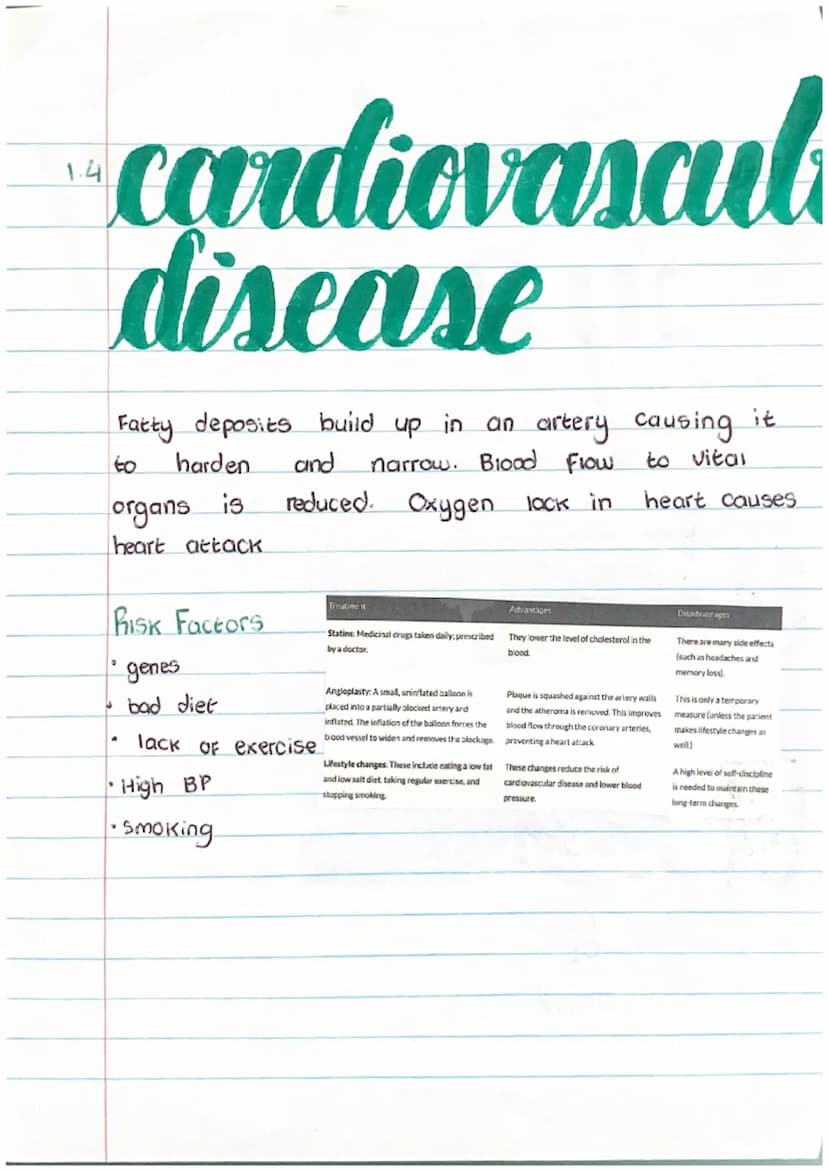 1.4
cardiovascul
disease
Fatty deposits build up in an artery causing it
to harden and narrow. Blood flow to vital
organs is reduced. Oxygen lack in heart causes
heart attack
Risk Factors
• genes
• bad diet
• lack of exercise
• High BP
• Smoking
Treatment Advantages Disadvantages
Statins: Medicinal drugs taken daily, prescribed
by a doctor.
They lower the level of cholesterol in the
blood.
There are many side effects
(such as headaches and
memory loss).
Angioplasty: A small, uninflated balloon is
placed into a partially blocked artery and
inflated. The inflation of the balloon forces the
blood vessel to widen and removes the blockage.
Plaque is squashed against the artery walls
and the atheroma is removed. This improves
blood flow through the coronary arteries,
preventing a heart attack.
This is only a temporary
measure (unless the patient
makes lifestyle changes as
well.)
Lifestyle changes: These include eating a low fat
and low salt diet, taking regular exercise, and
stopping smoking.
These changes reduce the risk of
cardiovascular disease and lower blood
pressure.
A high level of self-discipline
is needed to maintain these
long-term changes.